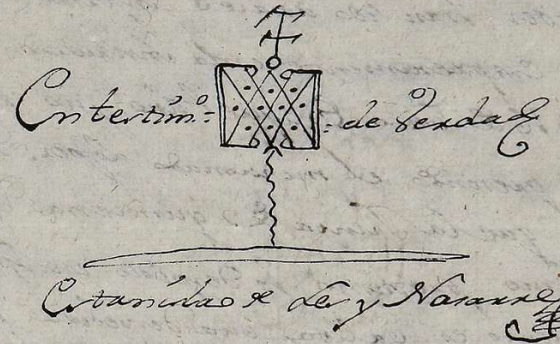 En testim.º = = de Verdad
Estanislao de Ley y Navarre